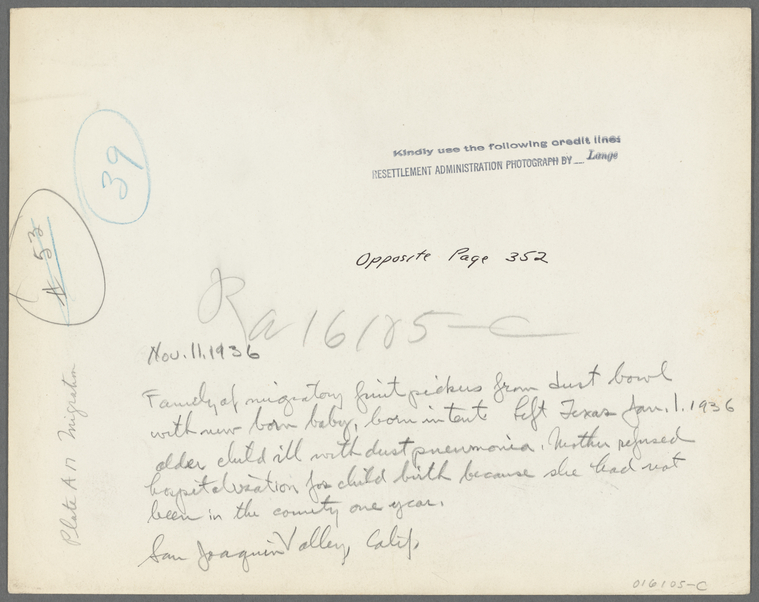 Kindly use the following credit line:
RESETTLEMENT ADMINISTRATION PHOTOGRAPH BY Lange
39
# 53
Opposite Page 352
Ra 16105-C
Nov. 11. 1936
Family of migratory fruit pickers from dust bowl
with new born baby, born in tent. Left Texas Jan. 1. 1936
older child ill with dust pneumonia. Mother refused
hospitalization for child birth because she had not
been in the county one year.
San Joaquin Valley, Calif.
Plate A 17 Migration
016105-C